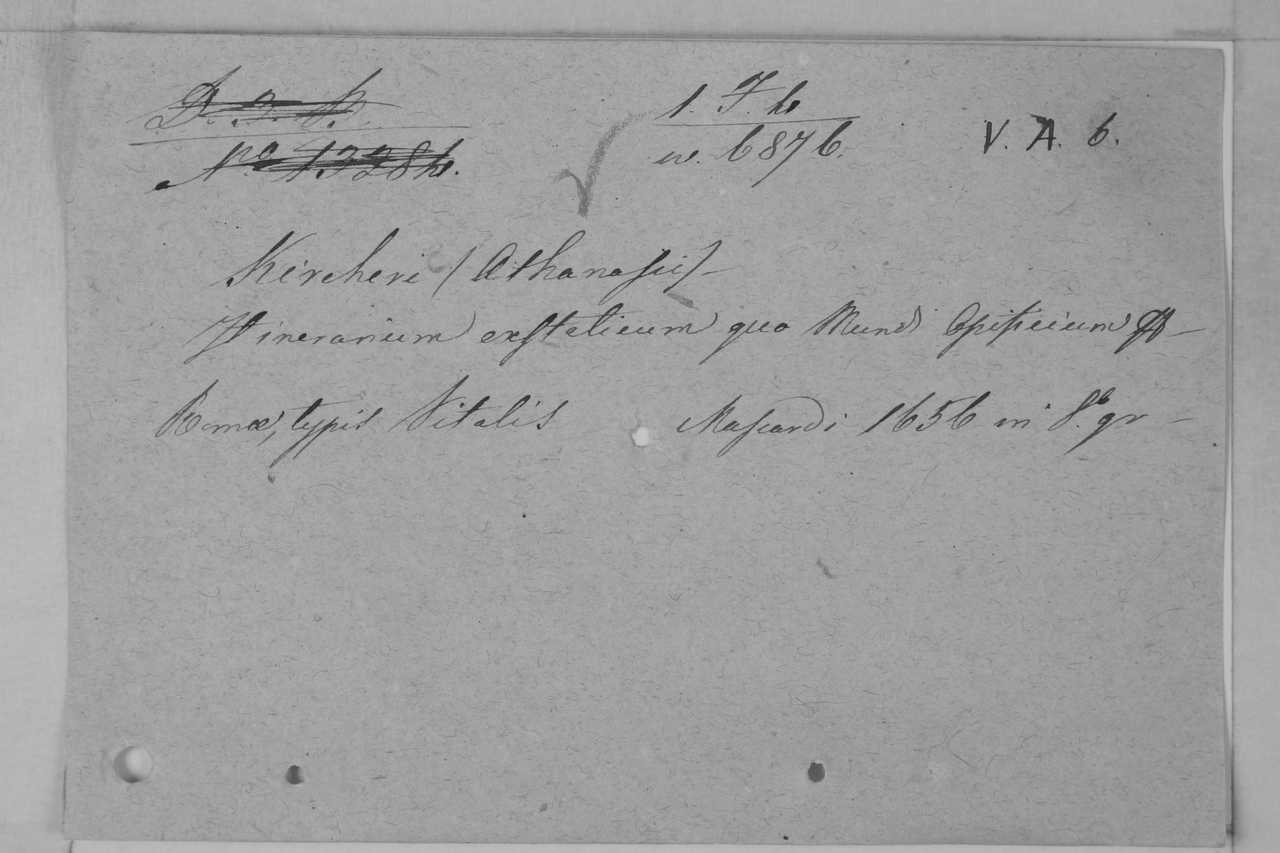 1. F. h
n. 6876.
V. A. 6.
Kircheri (Athanasii)
Itinerarium exstaticum quo Mundi Opificium
Romæ, typis Vitalis Mascardi 1656 in 8.º gr